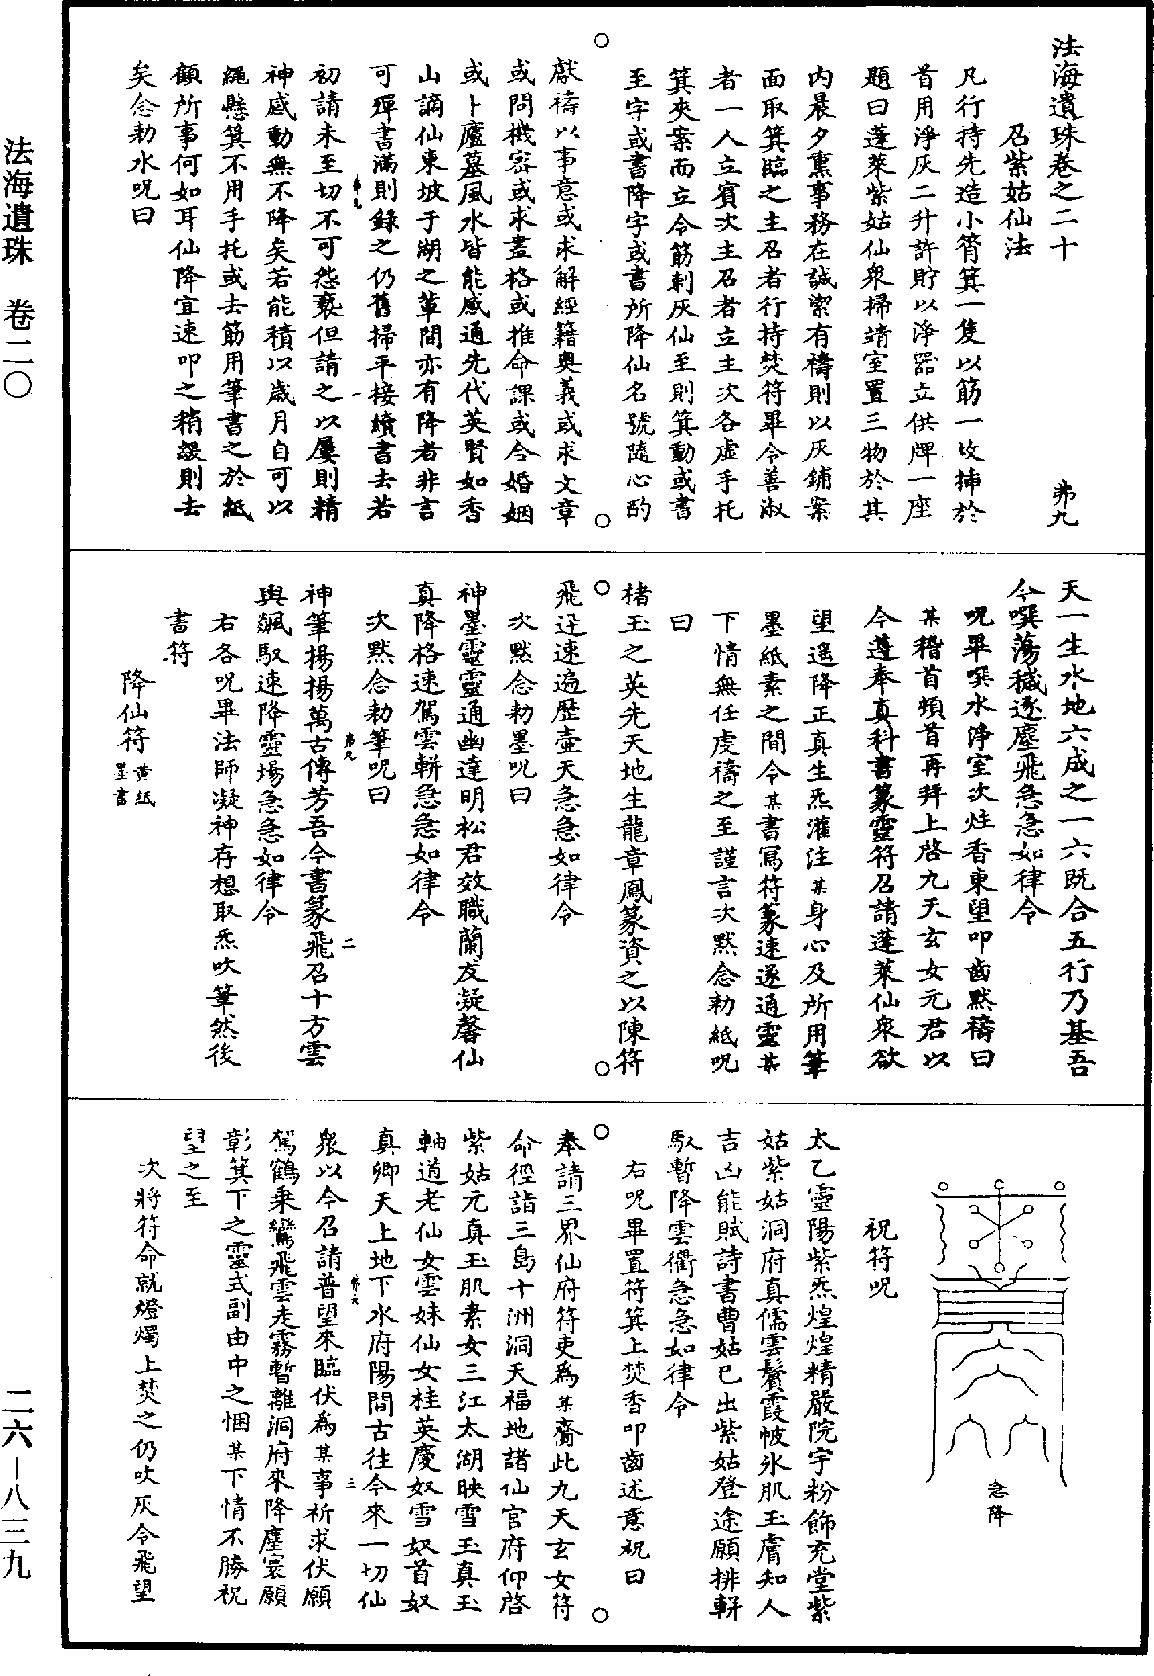 法海遺珠卷之二十 弗九
召紫姑仙法
凡行持先造小筲箕一隻以筯一枚插於
首用淨灰二升許貯以淨器立供牌一座
題曰蓬萊紫姑仙衆掃靖室置三物於其
內晨夕熏事務在誠潔有禱則以灰鋪案
面取箕臨之主召者行持焚符畢令善淑
者一人立賓次主召者立主次各虛手托
箕夾案而立令筯刺灰仙至則箕動或書
至字或書降字或書所降仙名號隨心酌
獻禱以事意或求解經籍奧義或求文章
或問機密或求畫格或推命課或合婚姻
或卜廬墓風水皆能感通先代英賢如香
山謫仙東坡于湖之輩間亦有降者非言
可殫書滿則錄之仍舊掃平接續書去若
初請未至切不可怨褻但請之以屢則精
神感動無不降矣若能積以歲月自可以
繩懸箕不用手托或去筯用筆書之於紙
顧所事何如耳仙降宜速叩之稍誤則去
矣念勑水呪曰
天一生水地六成之一六既合五行乃基吾
今噀蕩穢逐塵飛急急如律令
呪畢噀水淨室次炷香東望叩齒默禱曰
某稽首頓首再拜上啓九天玄女元君以
今遵奉真科書篆靈符召請蓬萊仙衆欲
望遥降正真生炁灌注某身心及所用筆
墨紙素之間令某書寫符篆速遂通靈某
下情無任虔禱之至謹言次默念勑紙呪
曰
楮玉之英先天地生龍章鳳篆資之以陳符
飛迅速遍歷壺天急急如律令
次默念勑墨呪曰
神墨靈靈通幽達明松君效職蘭友凝馨仙
真降格速駕雲軿急急如律令
次默念勑筆呪曰
神筆揚揚萬古傳芳吾今書篆飛召十方雲
輿飆馭速降靈場急急如律令
右各呪畢法師凝神存想取炁吹筆然後
書符
降仙符 黄紙墨書
急降
祝符呪
太乙靈陽紫炁煌煌精嚴院宇粉飾充堂紫
姑紫姑洞府真儒雲鬟霞帔氷肌玉膚知人
吉凶能賦詩書曹姑已出紫姑登途願排軿
馭暫降雲衢急急如律令
右呪畢置符箕上焚香叩齒述意祝曰
奉請三界仙府符吏為某齎此九天玄女符
命徑詣三島十洲洞天福地諸仙官府仰啓
紫姑元真玉肌素女三江太湖映雪玉真玉
軸道老仙女雲妹仙女桂英慶奴雪奴首奴
真卿天上地下水府陽間古往今來一切仙
衆以今召請普望來臨伏為某事祈求伏願
駕鶴乘鸞飛雲走霧暫離洞府來降塵寰願
彰箕下之靈式副由中之悃某下情不勝祝
望之至
次將符命就燈燭上焚之仍吹灰令飛望
法海遺珠 卷二〇
二六—八三九